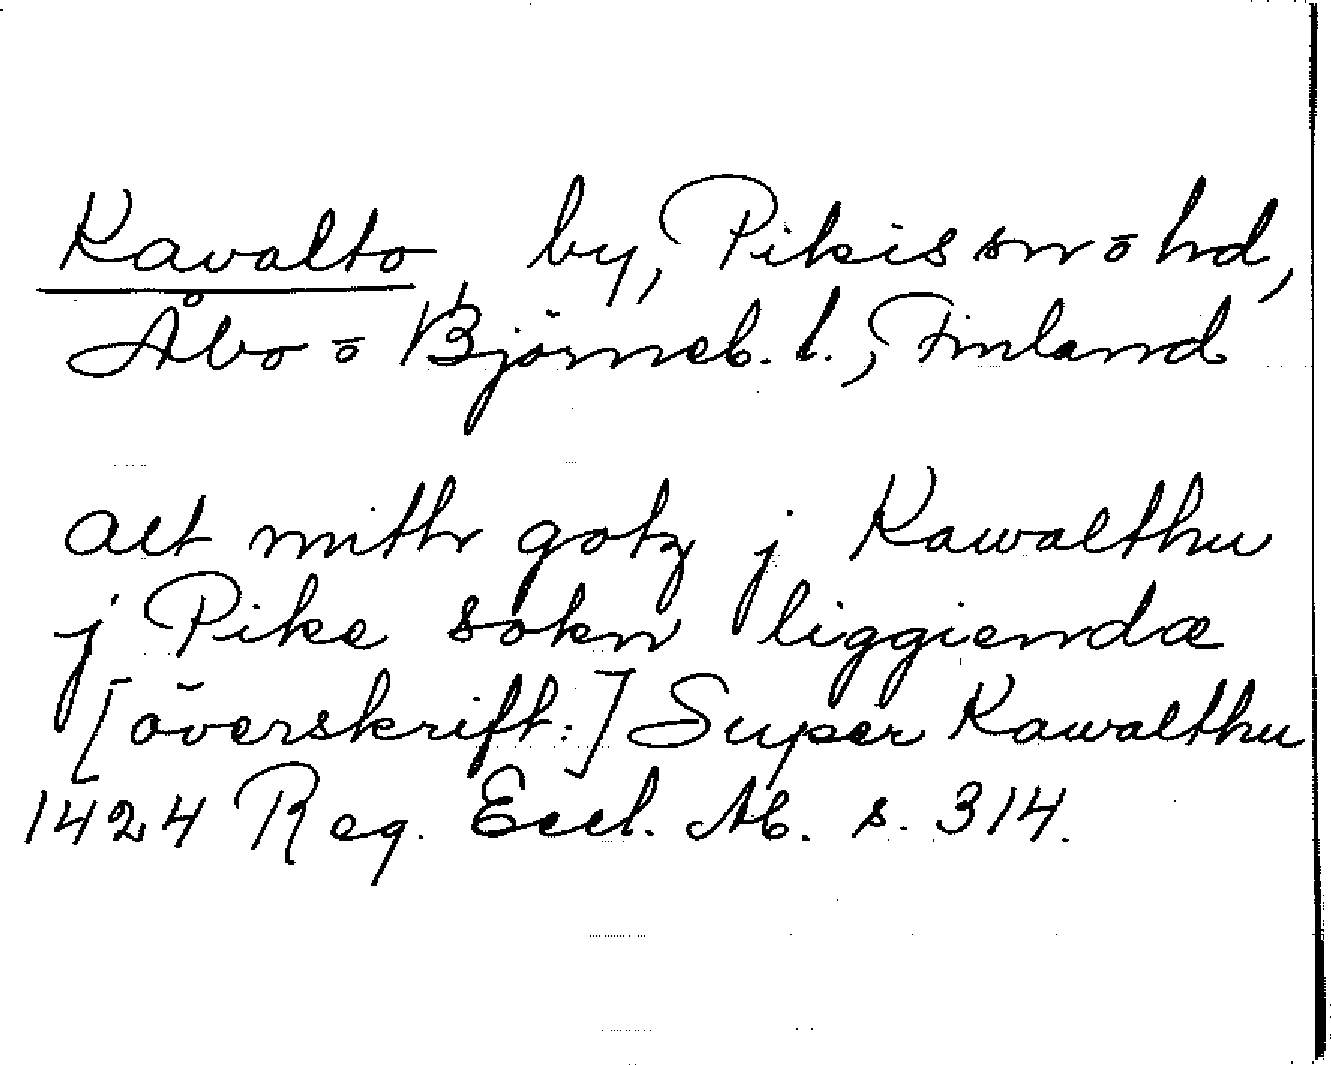 Kavalto, by, Pikis sn o hd,
Åbo o Björneb. l., Finland
alt mith gotz j Kawalthu
j Pike sokn liggiendæ
[överskrift:] Super Kawalthu
1424 Reg. Eccl. Ab. s. 314.